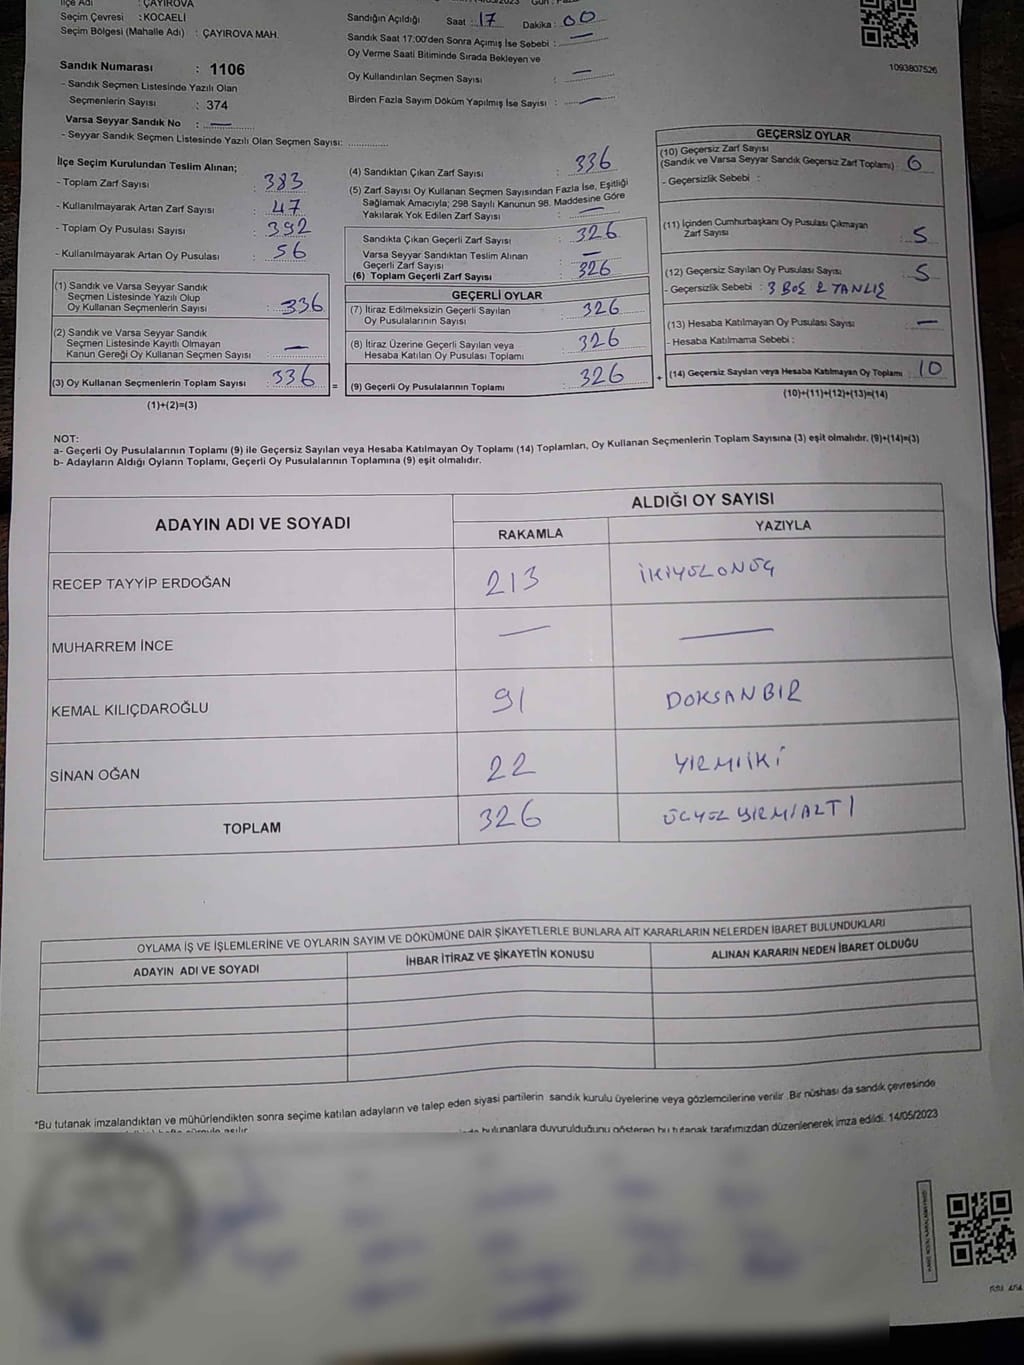 İlçe Adı : ÇAYIROVA
Seçim Çevresi : KOCAELİ
Seçim Bölgesi (Mahalle Adı) : ÇAYIROVA MAH.
Sandık Numarası : 1106
- Sandık Seçmen Listesinde Yazılı Olan
Seçmenlerin Sayısı : 374
Varsa Seyyar Sandık No : —
- Seyyar Sandık Seçmen Listesinde Yazılı Olan Seçmen Sayısı:
Sandığın Açıldığı Saat : 17 Dakika : 00
Sandık Saat 17:00'den Sonra Açımış İse Sebebi : —
Oy Verme Saati Bitiminde Sırada Bekleyen ve
Oy Kullandırılan Seçmen Sayısı : —
Birden Fazla Sayım Döküm Yapılmış İse Sayısı : —
1093807526
İlçe Seçim Kurulundan Teslim Alınan;
- Toplam Zarf Sayısı : 383
- Kullanılmayarak Artan Zarf Sayısı : 47
- Toplam Oy Pusulası Sayısı : 392
- Kullanılmayarak Artan Oy Pusulası : 56
(1) Sandık ve Varsa Seyyar Sandık
Seçmen Listesinde Yazılı Olup
Oy Kullanan Seçmenlerin Sayısı : 336
(2) Sandık ve Varsa Seyyar Sandık
Seçmen Listesinde Kayıtlı Olmayan
Kanun Gereği Oy Kullanan Seçmen Sayısı : —
(3) Oy Kullanan Seçmenlerin Toplam Sayısı : 336 =
(1)+(2)=(3)
(4) Sandıktan Çıkan Zarf Sayısı : 336
(5) Zarf Sayısı Oy Kullanan Seçmen Sayısından Fazla İse, Eşitliği
Sağlamak Amacıyla; 298 Sayılı Kanunun 98. Maddesine Göre
Yakılarak Yok Edilen Zarf Sayısı : —
Sandıkta Çıkan Geçerli Zarf Sayısı : 326
Varsa Seyyar Sandıktan Teslim Alınan
Geçerli Zarf Sayısı : —
(6) Toplam Geçerli Zarf Sayısı : 326
GEÇERLİ OYLAR
(7) İtiraz Edilmeksizin Geçerli Sayılan
Oy Pusulalarının Sayısı : 326
(8) İtiraz Üzerine Geçerli Sayılan veya
Hesaba Katılan Oy Pusulası Toplamı : 326
(9) Geçerli Oy Pusulalarının Toplamı : 326 +
GEÇERSİZ OYLAR
(10) Geçersiz Zarf Sayısı
(Sandık ve Varsa Seyyar Sandık Geçersiz Zarf Toplamı) : 0
- Geçersizlik Sebebi :
(11) İçinden Cumhurbaşkanı Oy Pusulası Çıkmayan
Zarf Sayısı : 5
(12) Geçersiz Sayılan Oy Pusulası Sayısı : 5
- Geçersizlik Sebebi : 3 BOŞ 2 YANLIŞ
(13) Hesaba Katılmayan Oy Pusulası Sayısı : —
- Hesaba Katılmama Sebebi :
(14) Geçersiz Sayılan veya Hesaba Katılmayan Oy Toplamı : 10
(10)+(11)+(12)+(13)=(14)
NOT:
a- Geçerli Oy Pusulalarının Toplamı (9) ile Geçersiz Sayılan veya Hesaba Katılmayan Oy Toplamı (14) Toplamları, Oy Kullanan Seçmenlerin Toplam Sayısına (3) eşit olmalıdır. (9)+(14)=(3)
b- Adayların Aldığı Oyların Toplamı, Geçerli Oy Pusulalarının Toplamına (9) eşit olmalıdır.
ADAYIN ADI VE SOYADI
ALDIĞI OY SAYISI
RAKAMLA YAZIYLA
RECEP TAYYİP ERDOĞAN 213 İKİYÜZONÜÇ
MUHARREM İNCE — —
KEMAL KILIÇDAROĞLU 91 DOKSANBİR
SİNAN OĞAN 22 YİRMİİKİ
TOPLAM 326 ÜÇYÜZYİRMİALTI
OYLAMA İŞ VE İŞLEMLERİNE VE OYLARIN SAYIM VE DÖKÜMÜNE DAİR ŞİKAYETLERLE BUNLARA AİT KARARLARIN NELERDEN İBARET BULUNDUKLARI
ADAYIN ADI VE SOYADI İHBAR İTİRAZ VE ŞİKAYETİN KONUSU ALINAN KARARIN NEDEN İBARET OLDUĞU
*Bu tutanak imzalandıktan ve mühürlendikten sonra seçime katılan adayların ve talep eden siyasi partilerin sandık kurulu üyelerine veya gözlemcilerine verilir. Bir nüshası da sandık çevresinde
bulunanlara duyurulduğunu gösteren bu tutanak tarafımızdan düzenlenerek imza edildi. 14/05/2023